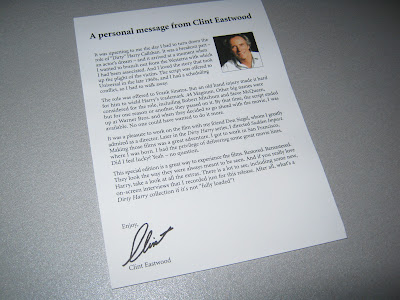 A personal message from Clint Eastwood
It was upsetting to me the day I had to turn down the
role of "Dirty" Harry Callahan. It was a breakout part –
an actor's dream – and it arrived at a moment when
I wanted to branch out from the Westerns with which
I had been associated. And I loved the story that took
up the plight of the victim. The script was offered to
Universal in the late 1960s, and I had a scheduling
conflict, so I had to walk away.
The role was offered to Frank Sinatra. But an old hand injury made it hard
for him to wield Harry's trademark .44 Magnum. Other big names were
considered for the role, including Robert Mitchum and Steve McQueen,
but for one reason or another, they passed on it. By that time, the script ended
up at Warner Bros. and when they decided to go ahead with the movie, I was
available. No one could have wanted to do it more.
It was a pleasure to work on the film with my friend Don Siegel, whom I greatly
admired as a director. Later in the Dirty Harry series, I directed Sudden Impact.
Making those films was a great adventure. I got to work in San Francisco,
where I was born. I had the privilege of delivering some great movie lines.
Did I feel lucky? Yeah – no question.
This special edition is a great way to experience the films. Restored. Remastered.
They look the way they were always meant to be seen. And if you really love
Harry, take a look at all the extras. There is a lot to see, including some new,
on-screen interviews that I recorded just for this release. After all, what's a
Dirty Harry collection if it's not "fully loaded"?
Enjoy,
Clint
Clint Eastwood